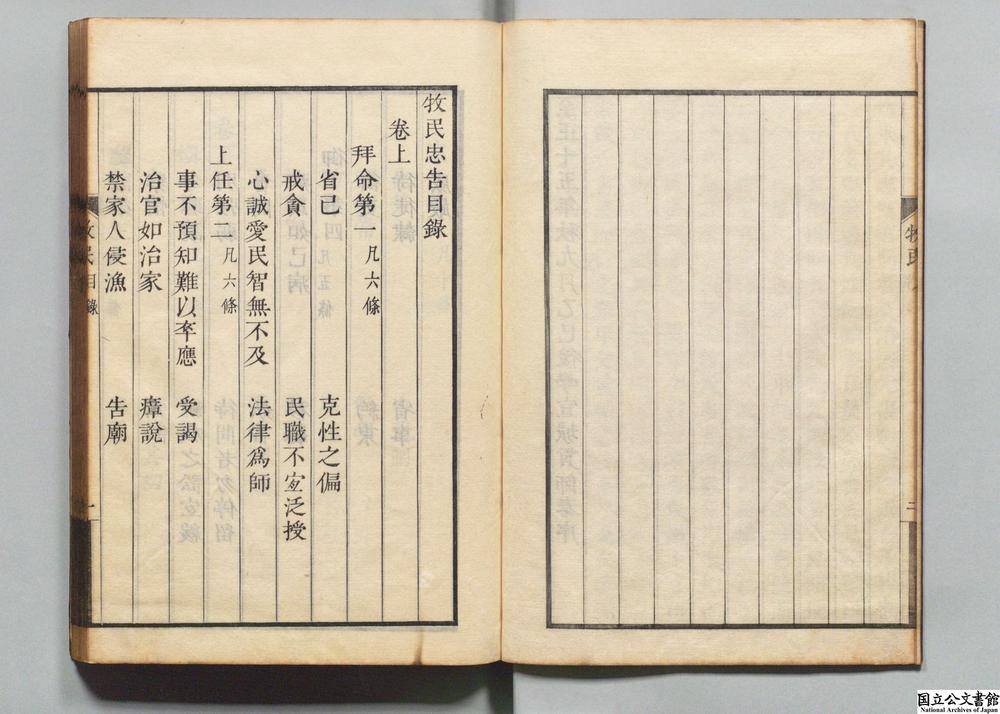 牧民忠告目錄
卷上
拜命第一 凡六條
省己 克性之偏
戒貪 民職不宜泛授
心誠愛民智無不及 法律爲師
上任第二 凡六條
事不預知難以卒應 受謁
治官如治家 瘴說
禁家人侵漁 告廟
牧民目錄 一
国立公文書館
National Archives of Japan